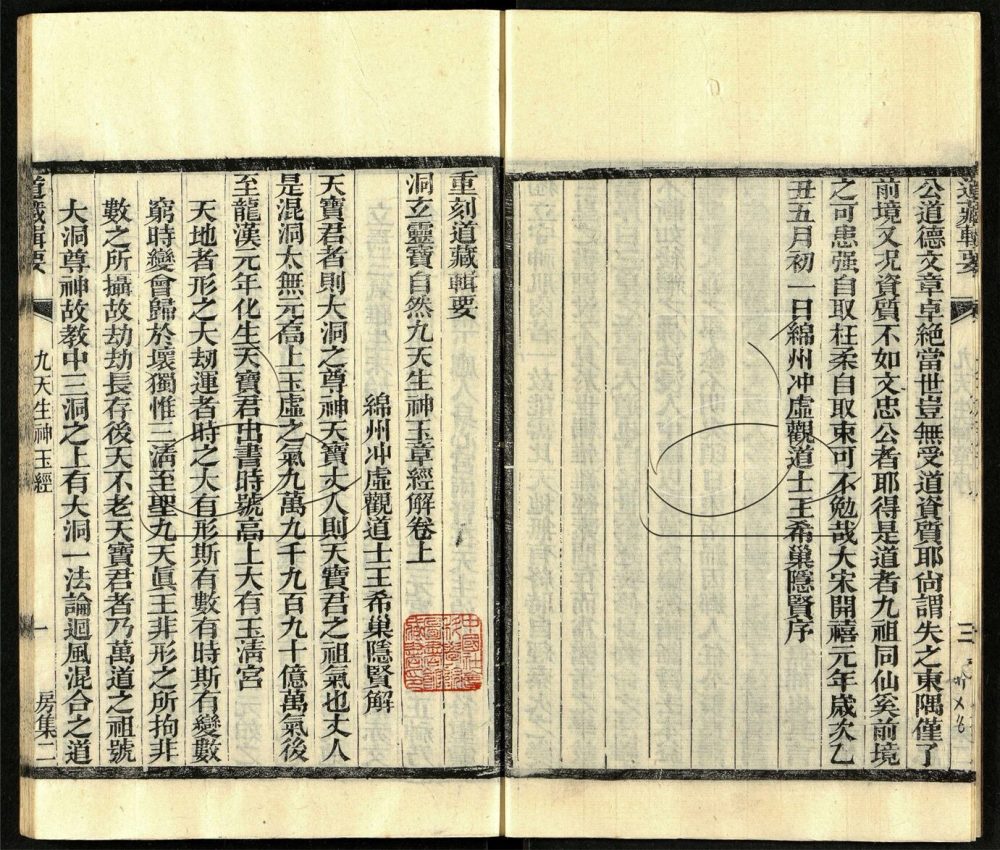 道藏輯要
三
公道德文章卓絶當世豈無受道資質耶尙謂失之東隅僅了
前境又况資質不如文忠公者耶得是道者九祖同仙奚前境
之可患强自取枉柔自取束可不勉哉大宋開禧元年歲次乙
丑五月初一日綿州冲虛觀道士王希巢隱賢序
重刻道藏輯要
洞玄靈寶自然九天生神玉章經解卷上
綿州冲虛觀道士王希巢隱賢解
天寶君者則大洞之尊神天寶丈人則天寶君之祖氣也丈人
是混洞太無元高上玉虛之氣九萬九千九百九十億萬氣後
至龍漢元年化生天寶君出書時號高上大有玉淸宮
天地者形之大刼運者時之大有形斯有數有時斯有變數
窮時變會歸於壞獨惟三淸至聖九天眞王非形之所拘非
數之所攝故劫劫長存後天不老天寶君者乃萬道之祖號
大洞尊神故敎中三洞之上有大洞一法論迴風混合之道
道藏輯要
九天生神玉經
一
房集二